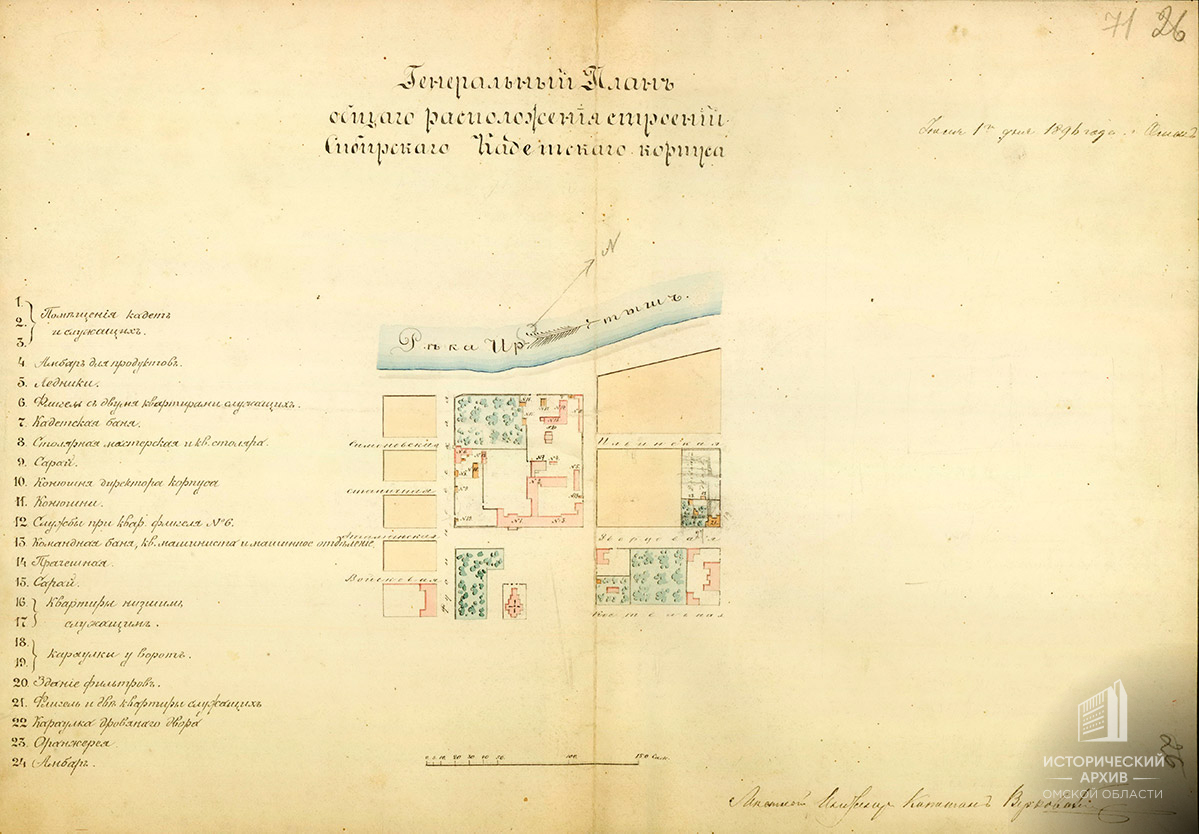 71 26
Генеральный Планъ
общаго расположенія строеній
Сибирскаго Кадетскаго корпуса
1го дня 1896 года
N
Рѣка Иртышъ.
1.
2.
3.
Помѣщенія кадетъ
и служащихъ.
4 Амбаръ для продуктовъ.
5. Ледники.
6. Флигель съ двумя квартирами служащихъ.
7. Кадетская баня.
8. Столярная мастерская и кв. столяра.
9. Сарай.
10. Конюшня директора корпуса
11. Конюшни.
12 Службы при квар. флигеля №6.
13. Командная баня, кв. машиниста и машинное отдѣленіе.
14. Прачешная.
15. Сарай.
16.
17
Квартиры низшимъ
служащимъ.
18.
19.
Караулки у воротъ.
20. Зданіе фильтровъ.
21. Флигель и двѣ квартиры служащихъ
22 Караулка дровянаго двора
23. Оранжерея
24 Амбаръ.
Ильинская
Станичная
Дворцовая
Войсковая
100 150 Саж.
Капитанъ
26
ИСТОРИЧЕСКИЙ
АРХИВ
ОМСКОЙ ОБЛАСТИ